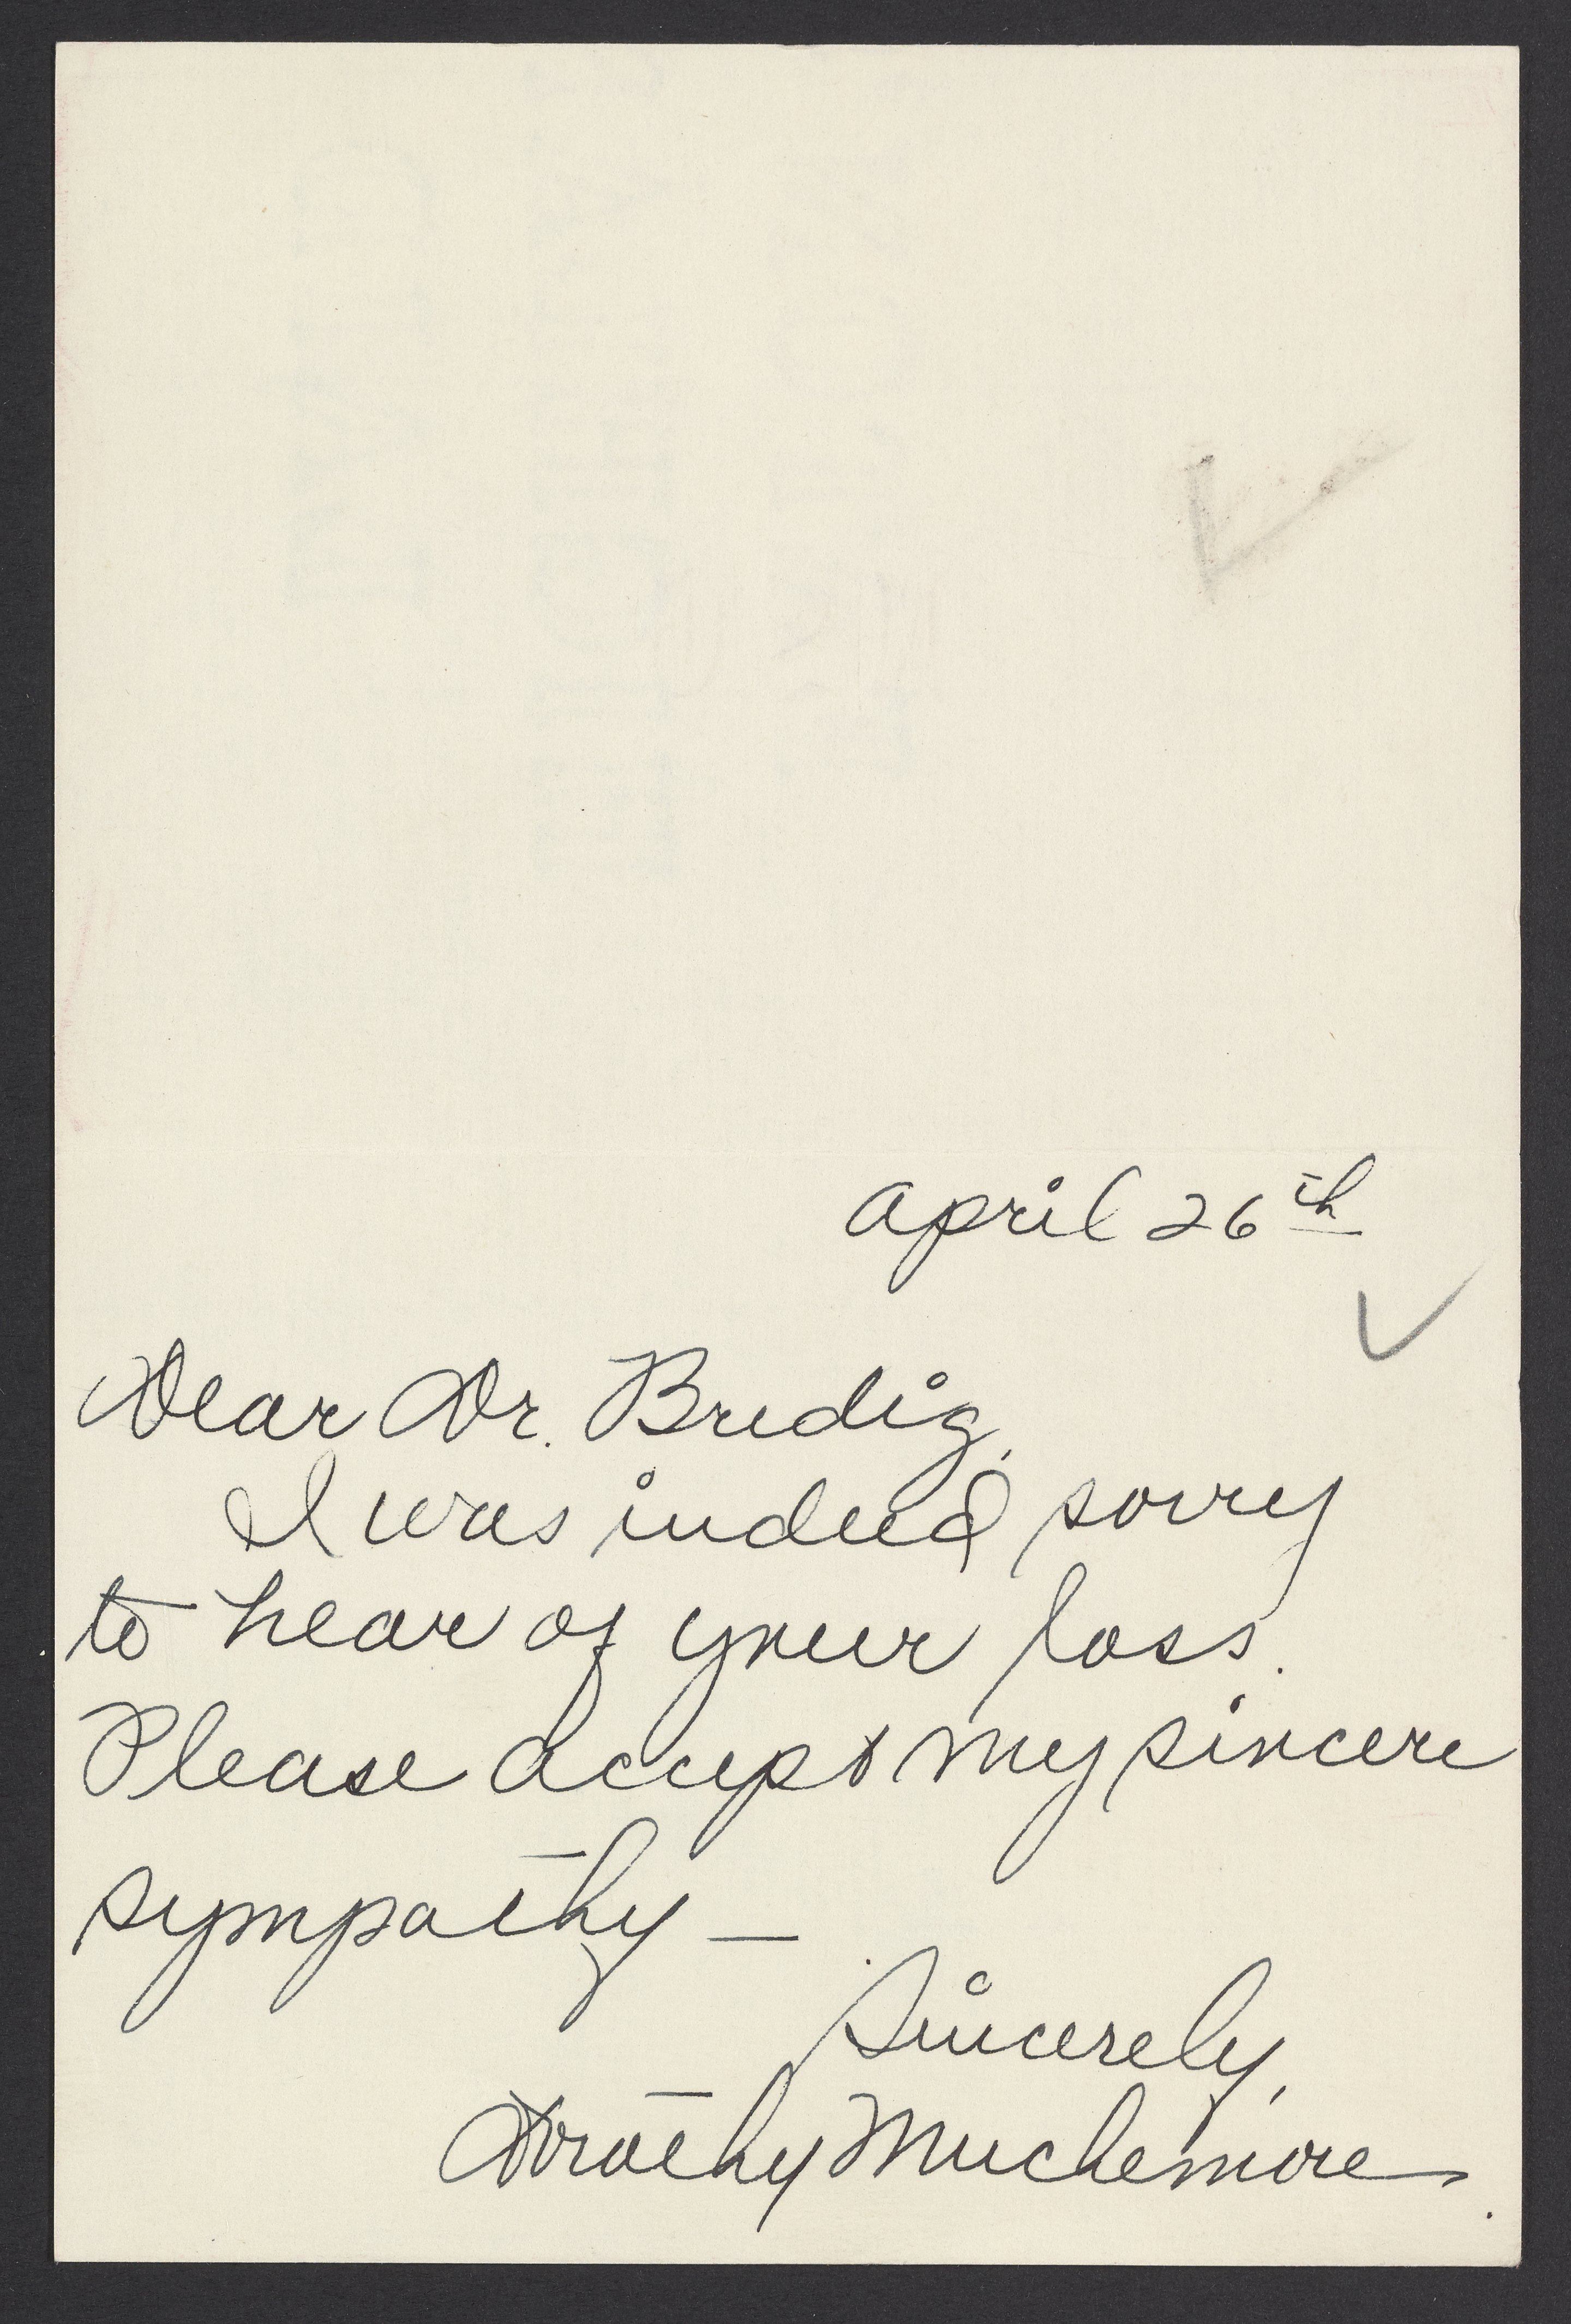 April 26th
Dear Dr. Bredig,
I was indeed sorry
to hear of your loss.
Please accept my sincere
sympathy —
Sincerely,
Dorothy Muchemore.